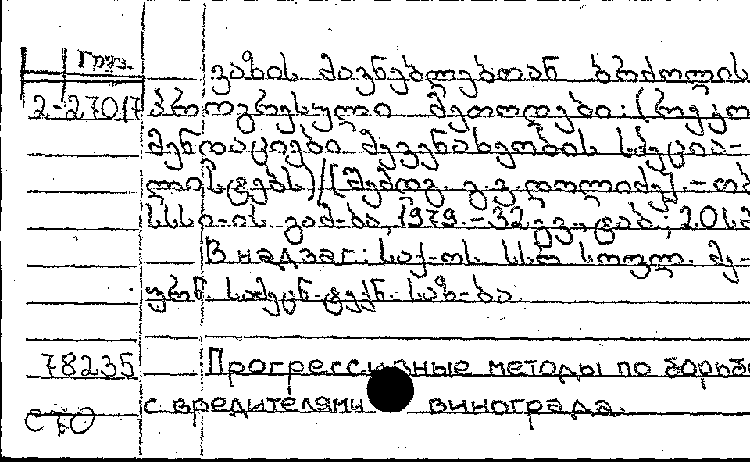 Груз.
ვაზის მავნებლებთან ბრძოლის
2-27017 პროგრესული მეთოდები: (რეკო
მენდაციები მევენახეობის სპეცია-
ლისტებს)/[შემდგ. გ.გ. დოლიძე]. – თბ
სსსი-ის გამ-ბა, 1979. – 32 გვ., ტაბ.; 20სმ
В надзаг: საქ-ოს სსრ სოფლ. მე-
ურნ. სამეცნ-ტექნ. საზ-ბა.
78235 Прогрессивные методы по борьбе
с вредителями винограда.
СТО